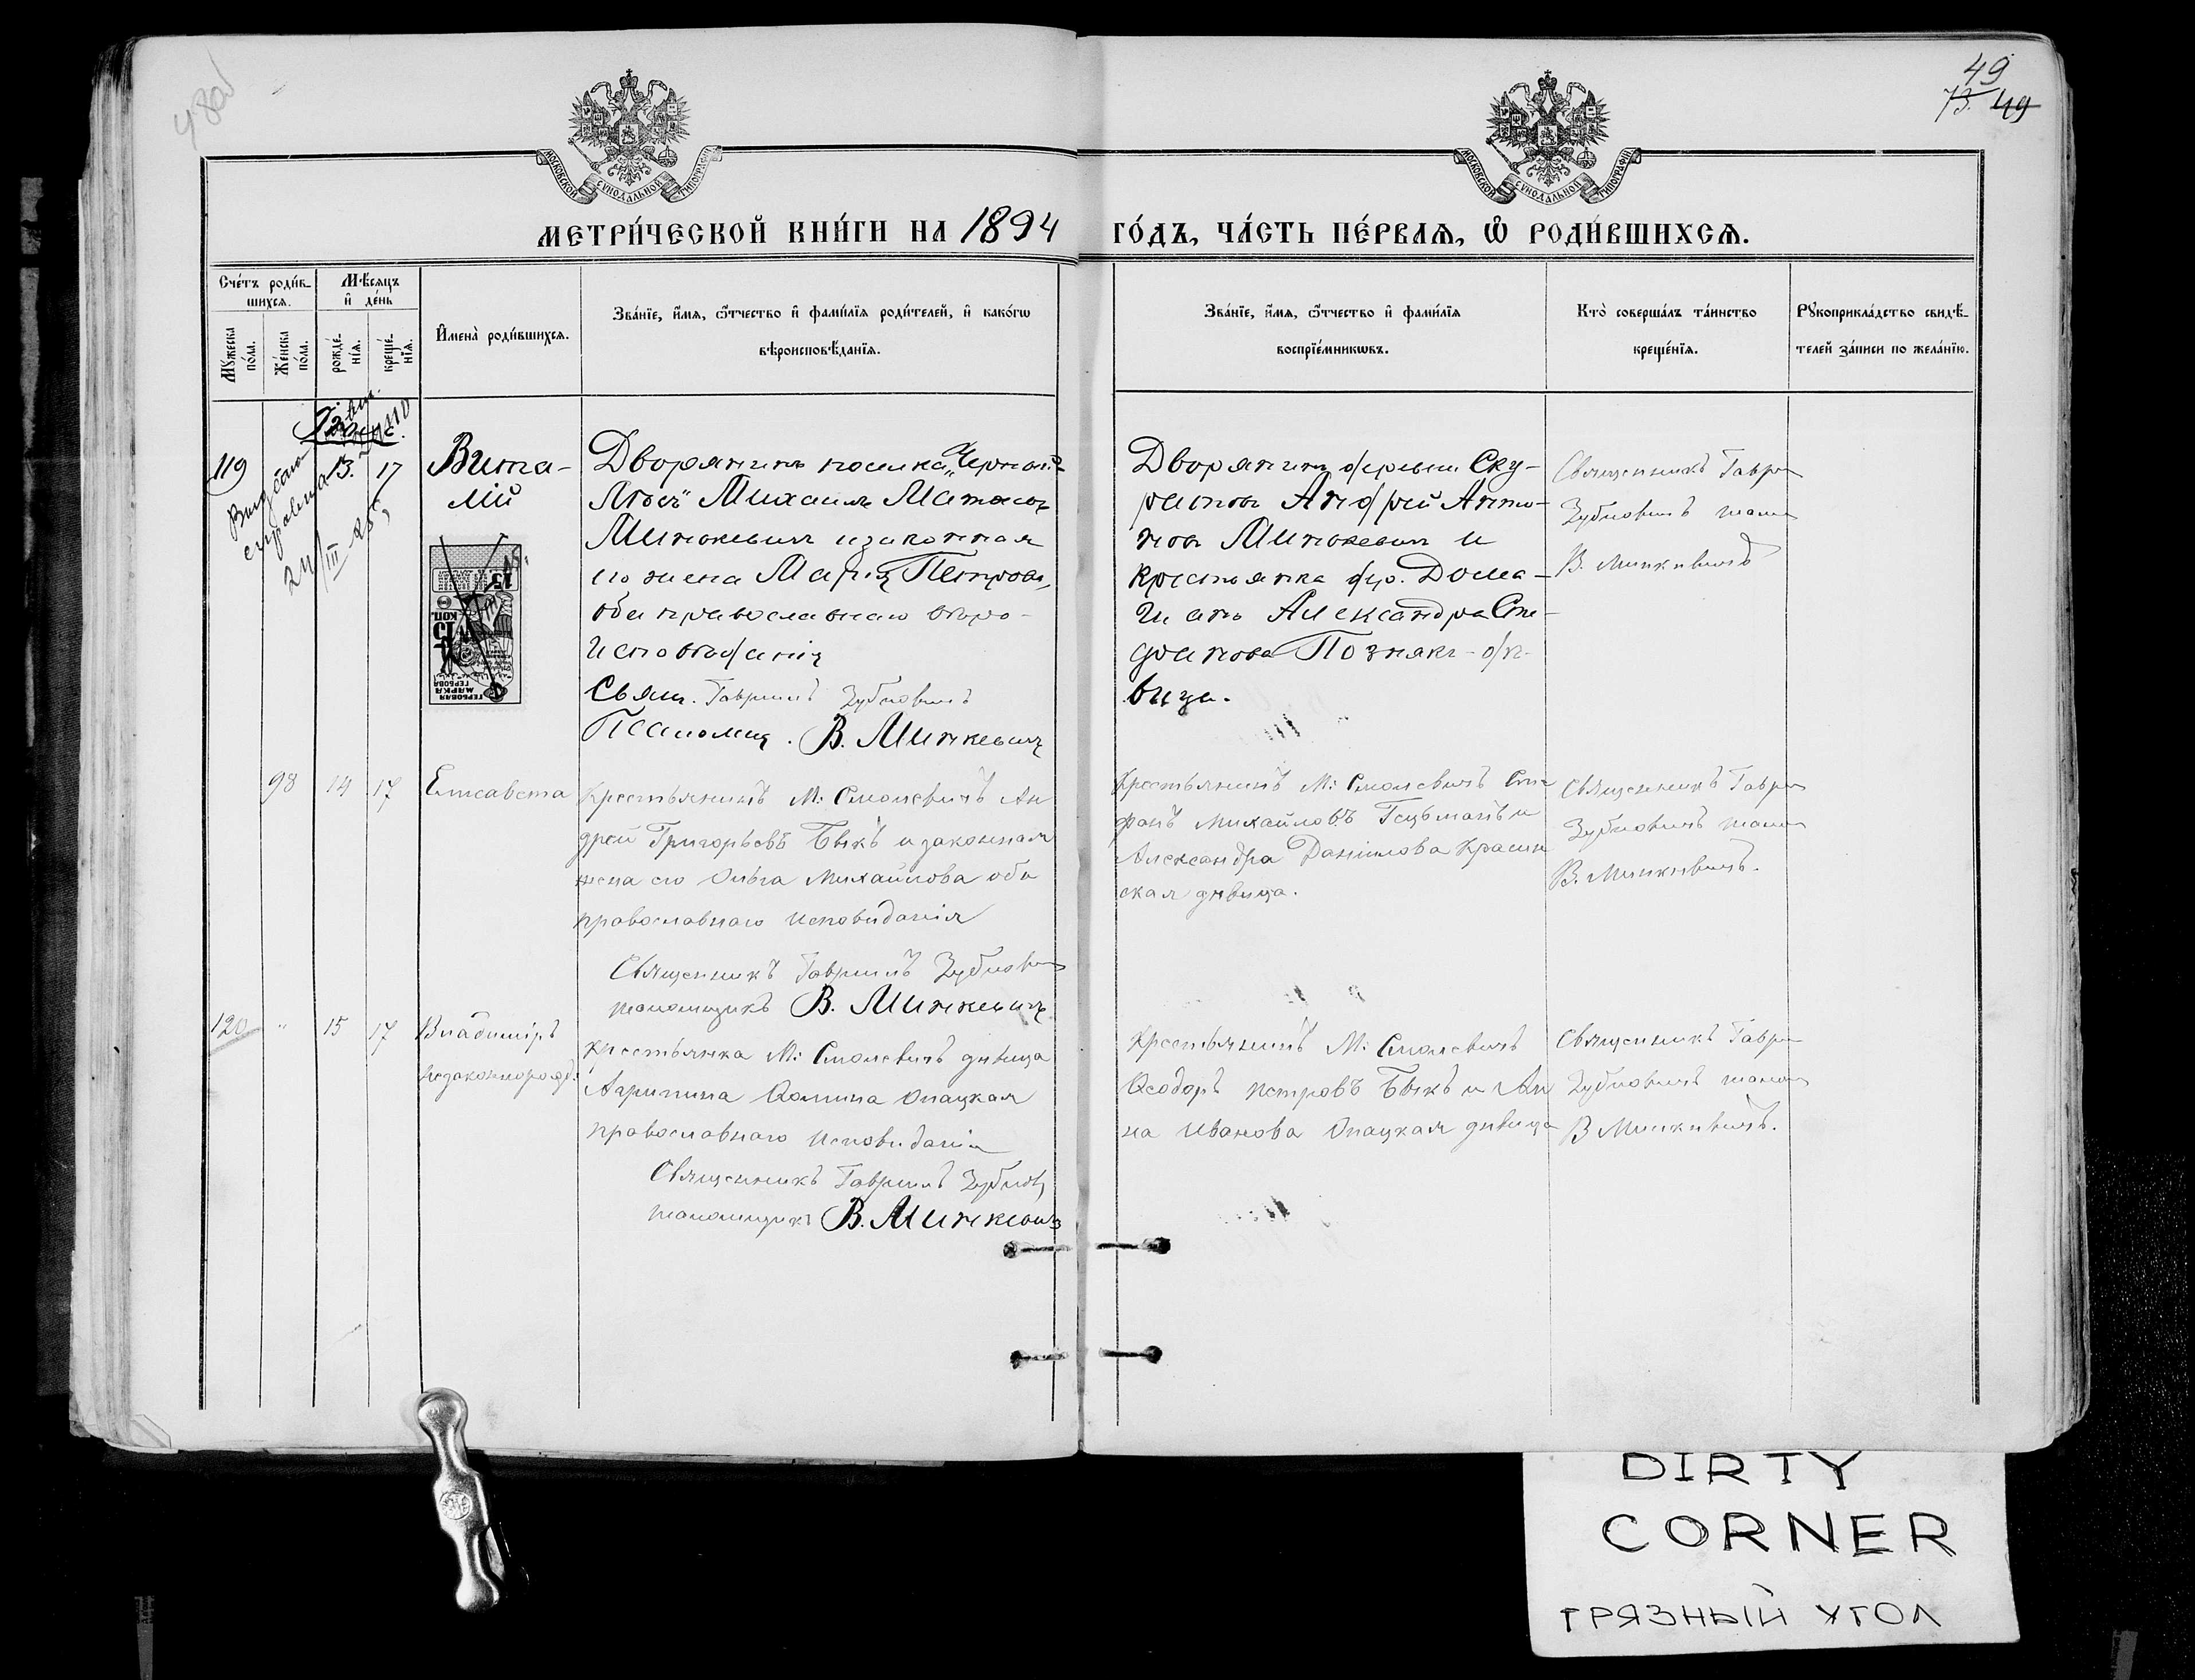 48об
49
73. 49
МОСКОВСКОЙ СУНОДАЛЬНОЙ ТИПОГРАФІИ
МОСКОВСКОЙ СУНОДАЛЬНОЙ ТИПОГРАФІИ
МЕТРИ́ЧЕСКОЙ КНИ́ГИ НА 1894 ГО́ДЪ, ЧА́СТЬ ПЕ́РВАѦ, Ѡ҆ РОДИ́ВШИХСѦ.
Сче́тъ роди́в-
шихсѧ.
Мꙋ́жеска
по́ла.
Же́нска
по́ла.
Мѣ́сѧцъ
и҆ де́нь
рожде́-
нїѧ.
креще́-
нїѧ.
И҆мена̀ роди́вшихсѧ.
Зва́нїе, и҆́мѧ, ѻ҆́тчество и҆ фами́лїѧ роди́телей, и҆ како́гѡ
вѣроисповѣ́данїѧ.
Зва́нїе, и҆́мѧ, ѻ҆́тчество и҆ фами́лїѧ
воспрїе́мникѡвъ.
Кто̀ соверша́лъ та́инство
креще́нїѧ.
Рꙋкоприкла́дство свидѣ́-
телей за́писи по жела́нїю.
119
13. 17
Вита-
лій
24/III 25
15 КОП
ГЕРБОВАЯ
МАРКА
ГЕРБОВА
Дворянинъ поселка „Черной
Михаилъ
Минкевичъ и законная
его жена Марія Петрова,
оба православнаго вѣро-
исповѣданія
Свящ. Гавриилъ Зубковичъ
Псаломщ. В. Минкевичъ
Дворянинъ деревни Ску-
ратовъ Андрей Анто-
новъ Минкевичъ и
крестьянка дер. Дома-
Александра Сте-
фанова Позняк- дѣ-
вица.
Священникъ Гавр
Зубковичъ
В. Минкевичъ
98 14 17
Елисавета
Крестьянинъ М: Смолевичъ Ан
дрей Григорьевъ Быкъ и законная
жена его Ольга Михайлова оба
православнаго исповѣданія
Священникъ Гавриилъ Зубкович
псаломщикъ В. Минкевичъ
Крестьянинъ М: Смолевичъ Сте
фанъ Михайловъ Гецьманъ и
Александра Данилова Красин
ская дѣвица.
Священникъ Гавр
Зубковичъ
В. Минкевичъ.
120 " 15 17
Владиміръ
незаконнорожд:
Крестьянка М: Смолевичъ дѣвица
Агрипина Ѳомина Опацкая
православнаго исповѣданія
Священникъ Гавриилъ Зубков
псаломщикъ В. Минкевичъ
Крестьянинъ М: Смолевичъ
Ѳеодоръ Петровъ Быкъ и Ан
на Иванова Опацкая дѣвица
Священникъ Гавр
Зубковичъ
В Минкевичъ.
DIRTY
CORNER
ГРЯЗНЫЙ УГОЛ